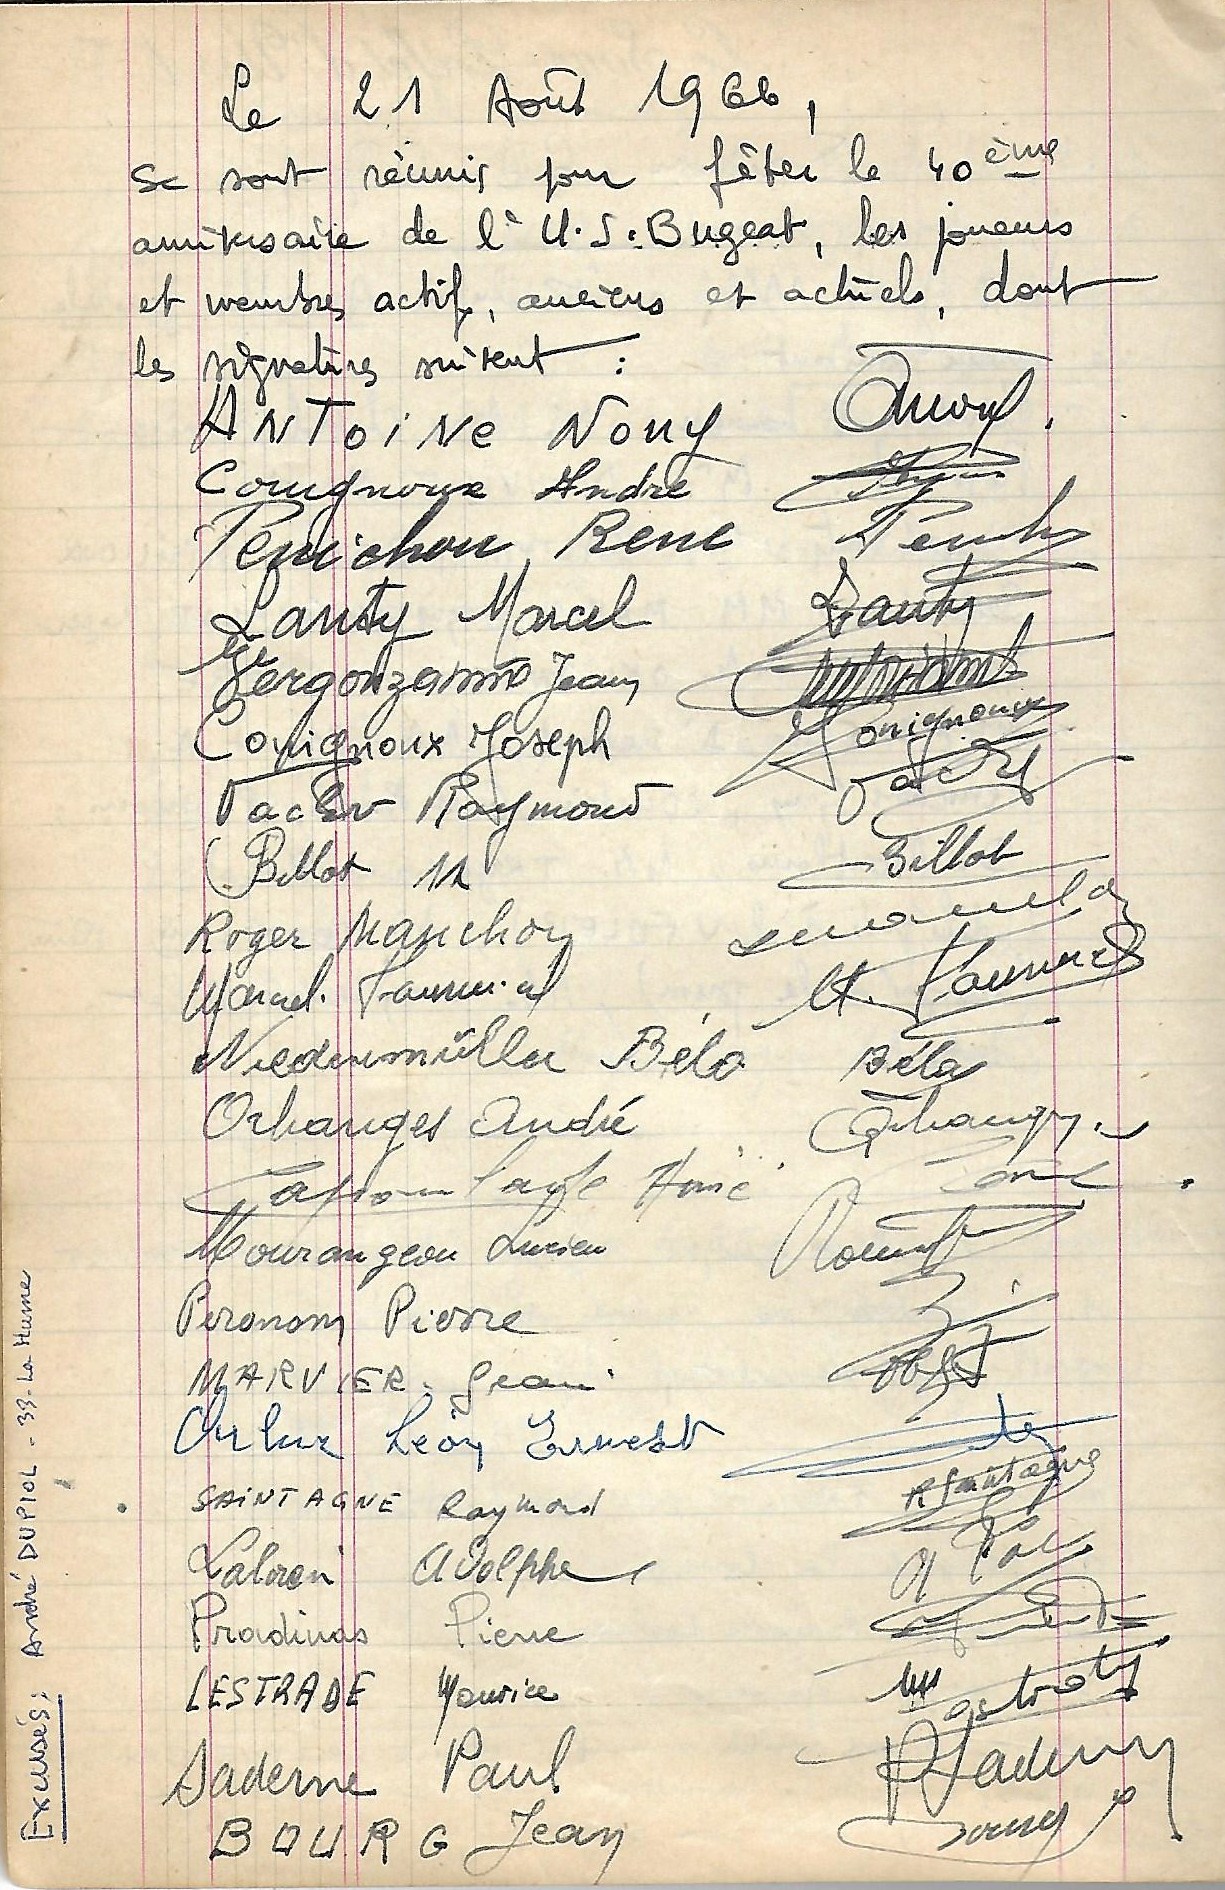 Le 21 Août 1966,
se sont réunis pour fêter le 40ème
anniversaire de l'U.S. Bugeat, les joueurs
et membres actifs, anciens et actuels, dont
les signatures suivent :
ANTOINE Nony
Couignoux André
Penichou René Penich
Lanty Marcel Lanty
Vergonzanne Jean
Couignoux Joseph Couignoux
Vacher Raymond
Billot M Billot
Roger Manchon
Marcel
Niedermüller Béla Béla
Orhanges André
Aimé
Mourangeou Lucien
Peronom Pierre
MARVIER. Jean
Léon Ernest
SAINTAGNE Raymond R Saintagne
Adolphe
Pradinas Pierre
LESTRADE Maurice
Saderne Paul P Saderne
BOURG Jean Bourg
Excusés : André DUPIOL - 33-La Hume